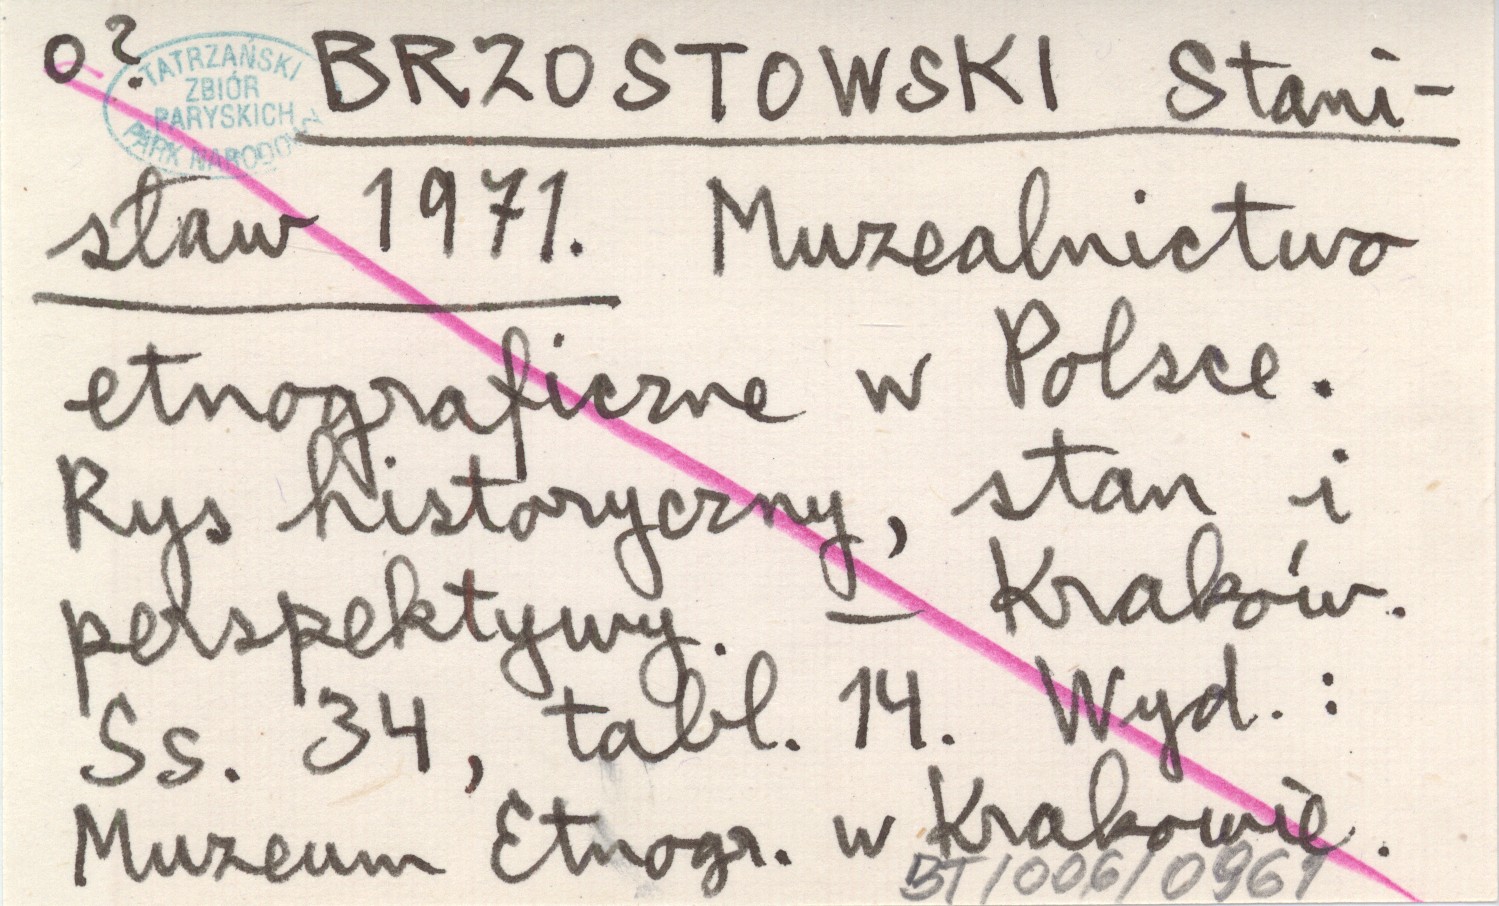 o?
TATRZAŃSKI
ZBIÓR
PARYSKICH
PARK NARODOWY
BRZOSTOWSKI Stani-
sław 1971. Muzealnictwo
etnograficzne w Polsce.
Rys historyczny, stan i
perspektywy. — Kraków.
Ss. 34, tabl. 14. Wyd.:
Muzeum Etnogr. w Krakowie.
BT/006/0961